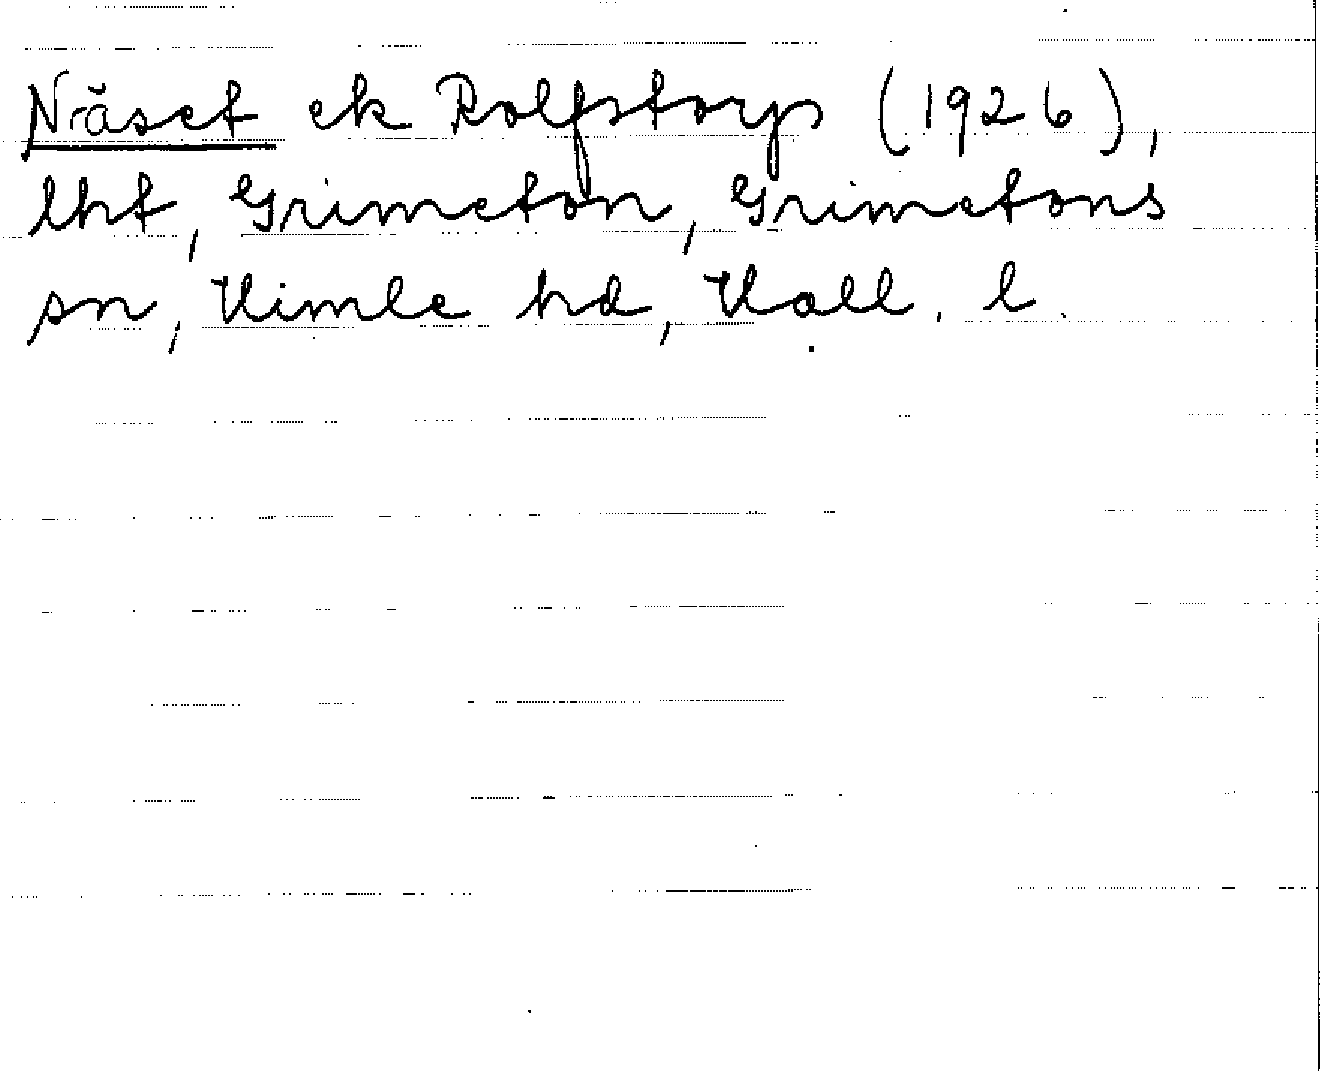 Näset ek Rolfstorps (1926),
lht, Grimeton, Grimetons
sn, Himle hd, Hall. l.